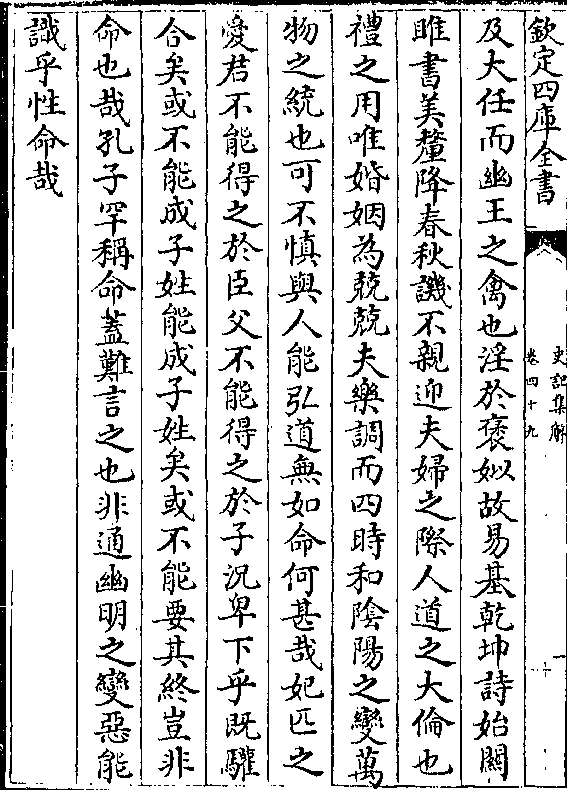 欽定四庫全書
史記集解
卷四十九
一
及大任而幽王之禽也淫於褒姒故易基乾坤詩始關
雎書美釐降春秋譏不親迎夫婦之際人道之大倫也
禮之用唯婚姻為兢兢夫樂調而四時和陰陽之變萬
物之統也可不慎與人能弘道無如命何甚哉妃匹之
愛君不能得之於臣父不能得之於子況卑下乎既驩
合矣或不能成子姓能成子姓矣或不能要其終豈非
命也哉孔子罕稱命蓋難言之也非通幽明之變惡能
識乎性命哉